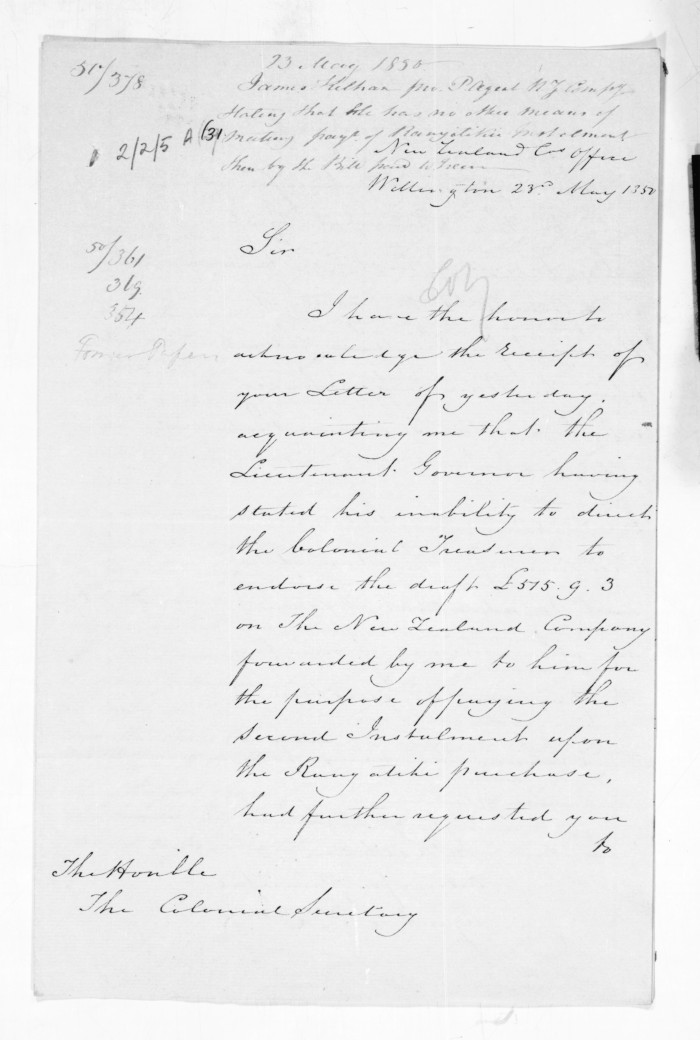 23 May 1850
50/378
James Kelham pro. P Agent N Z Compy
stating that he has no other means of
meeting payt of Rangitikei Instalment
than by the Bill
2/2/5 A (3)
New Zealand Cos Office
Wellington 23rd May 1850
50/361
369
354
Former Papers
Sir
I have the honor to
acknowledge the receipt of
your Letter of yesterday,
acquainting me that the
Lieutenant Governor having
stated his inability to direct
the Colonial Treasurer to
endorse the draft £515.9.3
on The New Zealand Company
forwarded by me to him for
the purpose of paying the
Second Instalment upon
the Rangatiki purchase,
had further requested you
to
The Honble
The Colonial Secretary